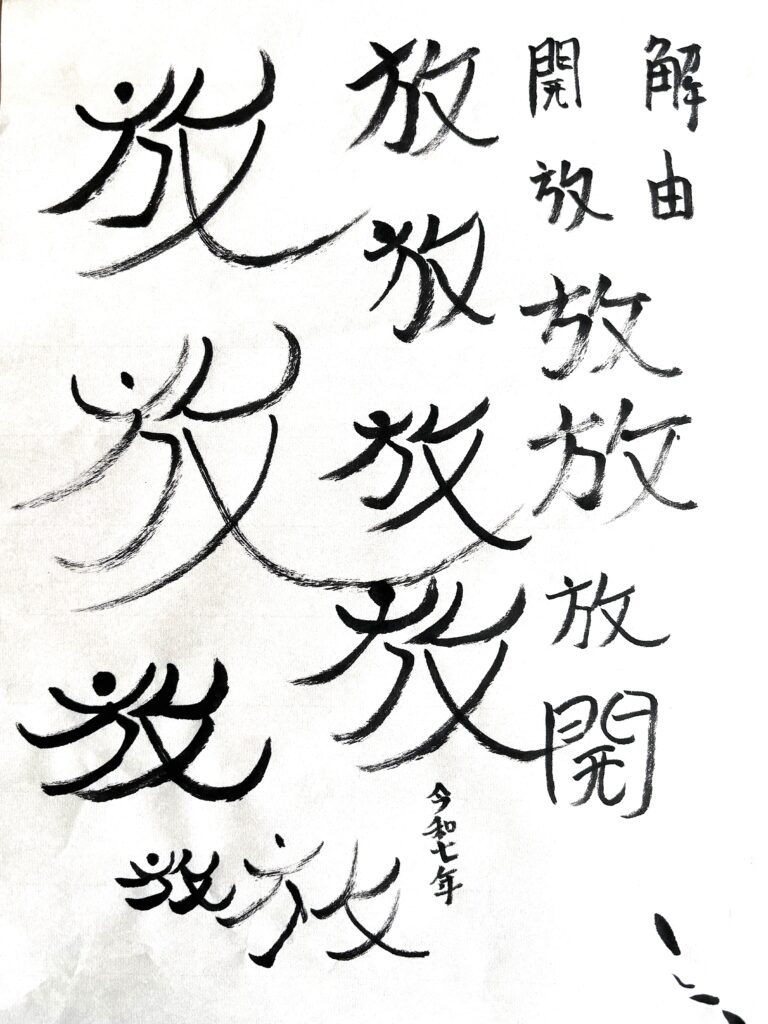 解由
開放放放放開
放放放放
今和七年
放放放放放